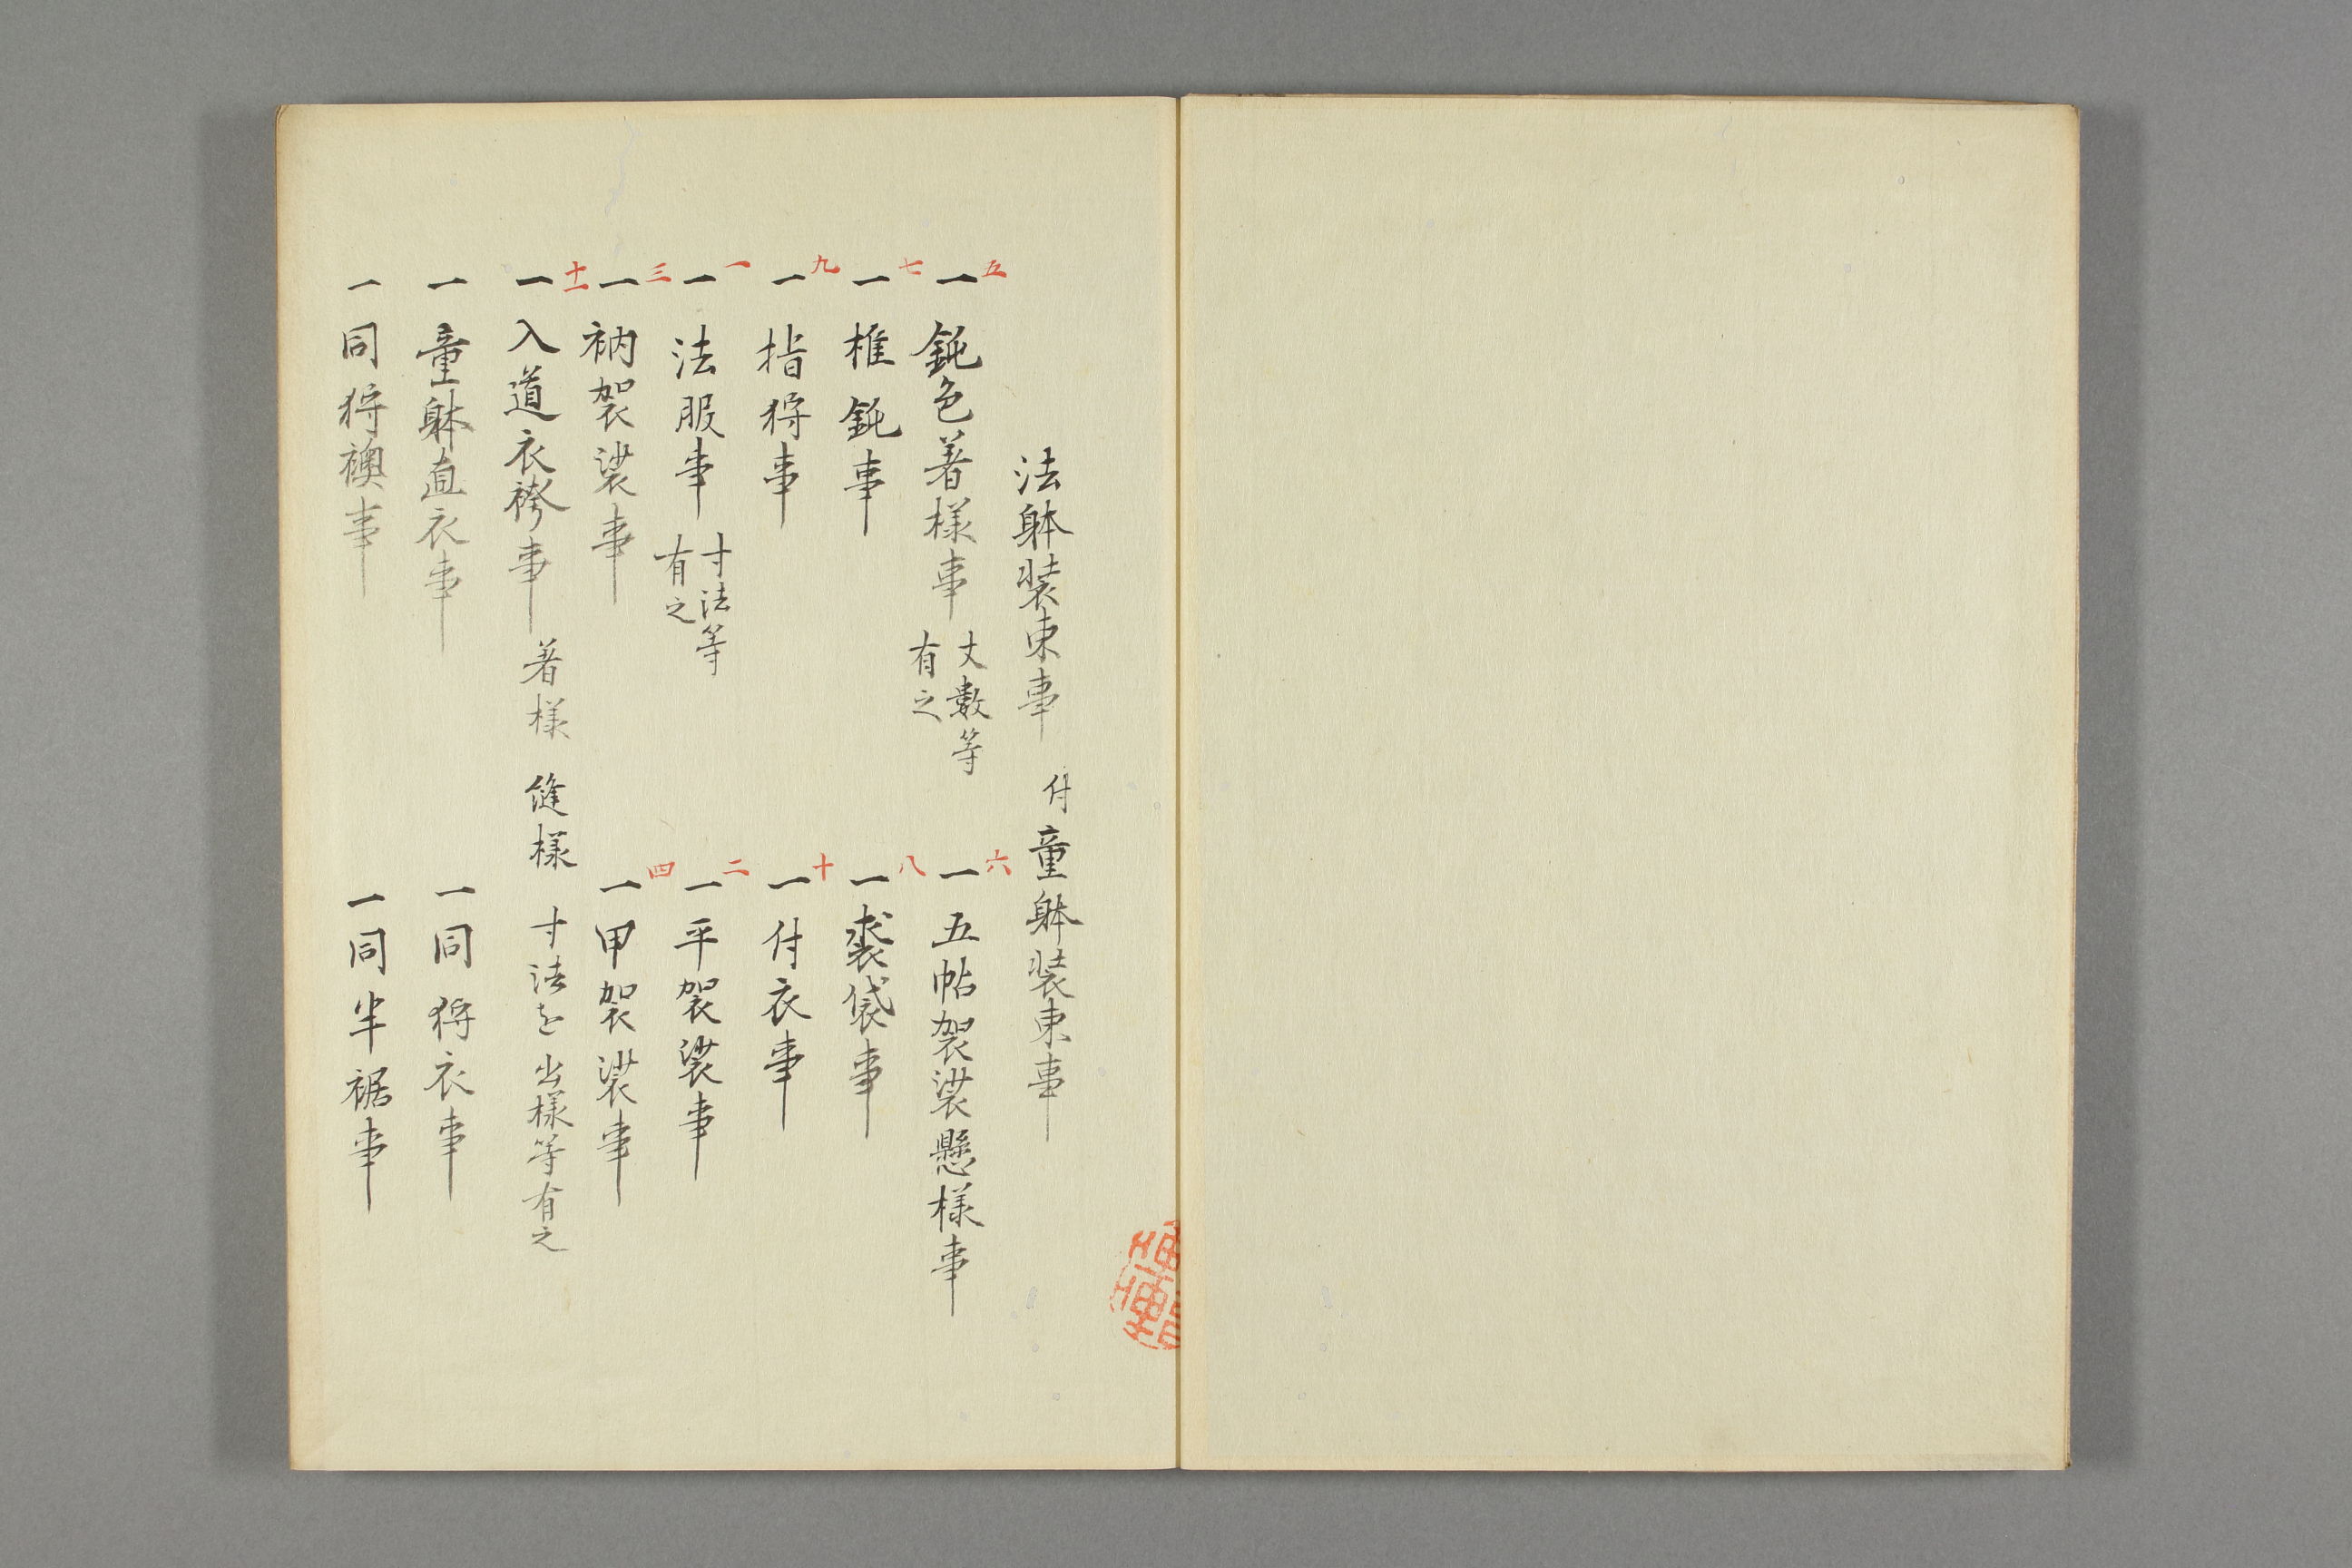 法躰装束事 付童躰装束事
五 一 鈍色著様事 丈數等有之 六 一 五帖袈裟懸様事
七 一 椎鈍事 八 一 裘袋事
九 一 指狩事 十 一 付衣事
一 一 法服事 寸法等有之 二 一 平袈裟事
三 一 衲袈裟事 四 一 甲袈裟事
十一 一 入道衣袴事 著様 縫様 寸法を出様等有之
一 童躰直衣事 一 同狩衣事
一 同狩襖事 一 同半裾事